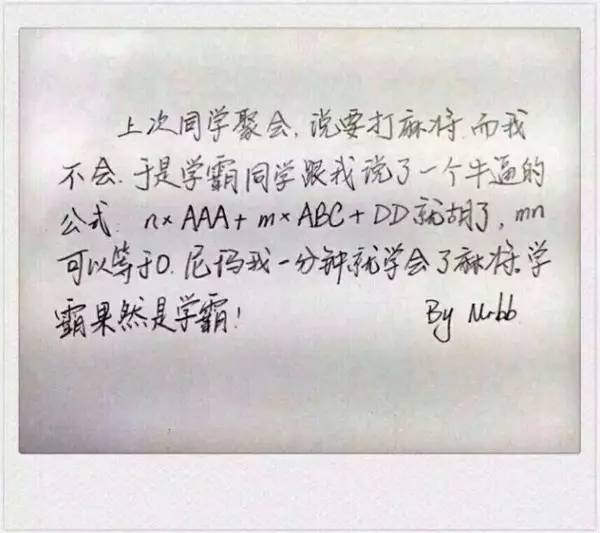 上次同学聚会,说要打麻将.而我
不会.于是学霸同学跟我说了一个牛逼的
公式. n×AAA+m×ABC+DD就胡了,mn
可以等于0.尼玛我一分钟就学会了麻将.学
霸果然是学霸!
By Mrbb